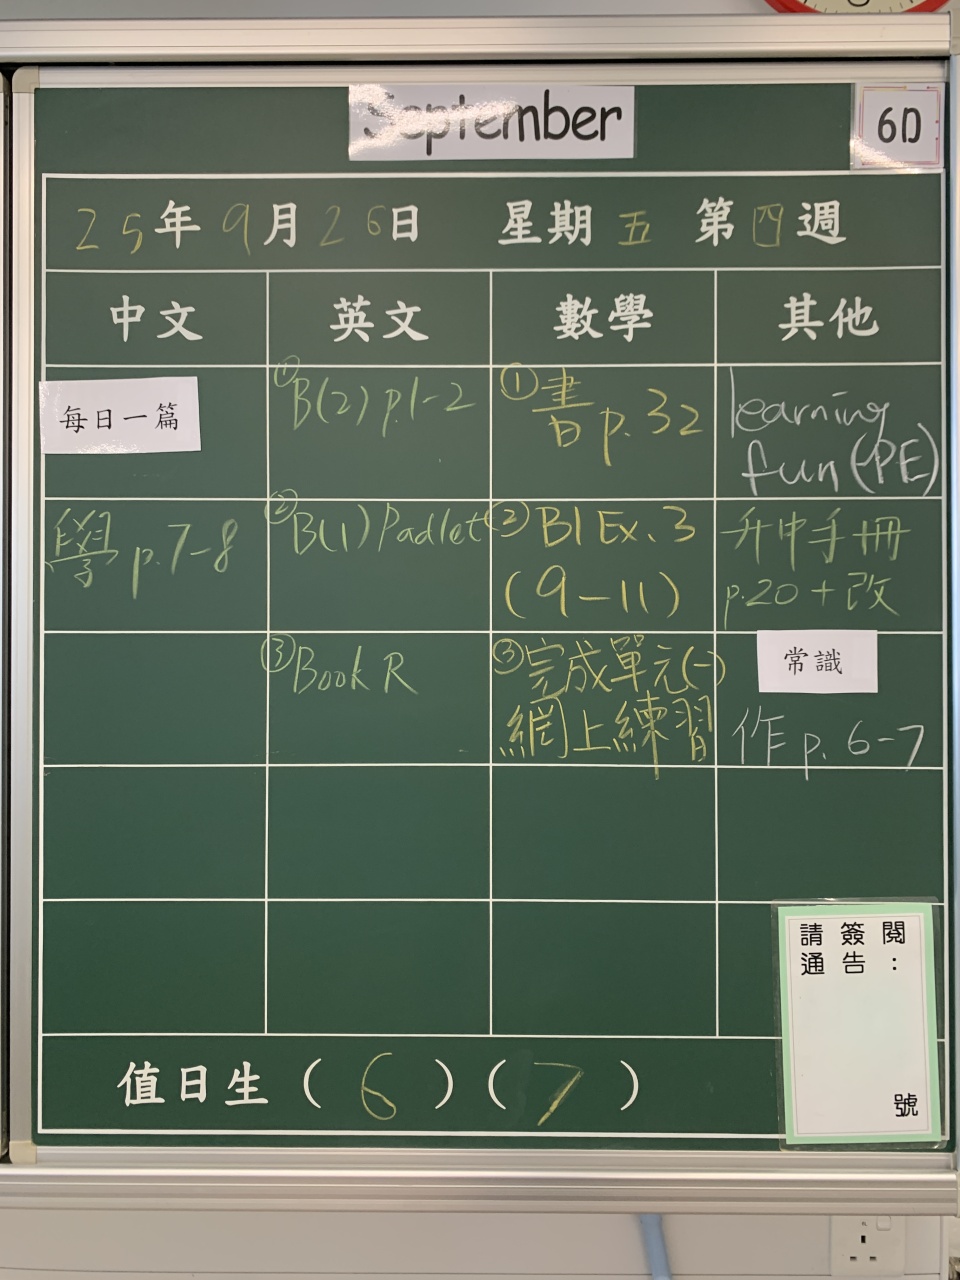 September
6D
25年9月26日 星期五 第四週
中文 英文 數學 其他
每日一篇
①B(2) p.1-2
①書 p.32
learning
fun (PE)
學 p.7-8
②B(1) Padlet
②B1 Ex.3
(9-11)
升中手冊
p.20+改
③Book R
③完成單元(一)
網上練習
常識
作 p.6-7
請簽閱
通告：
號
值日生(6)(7)